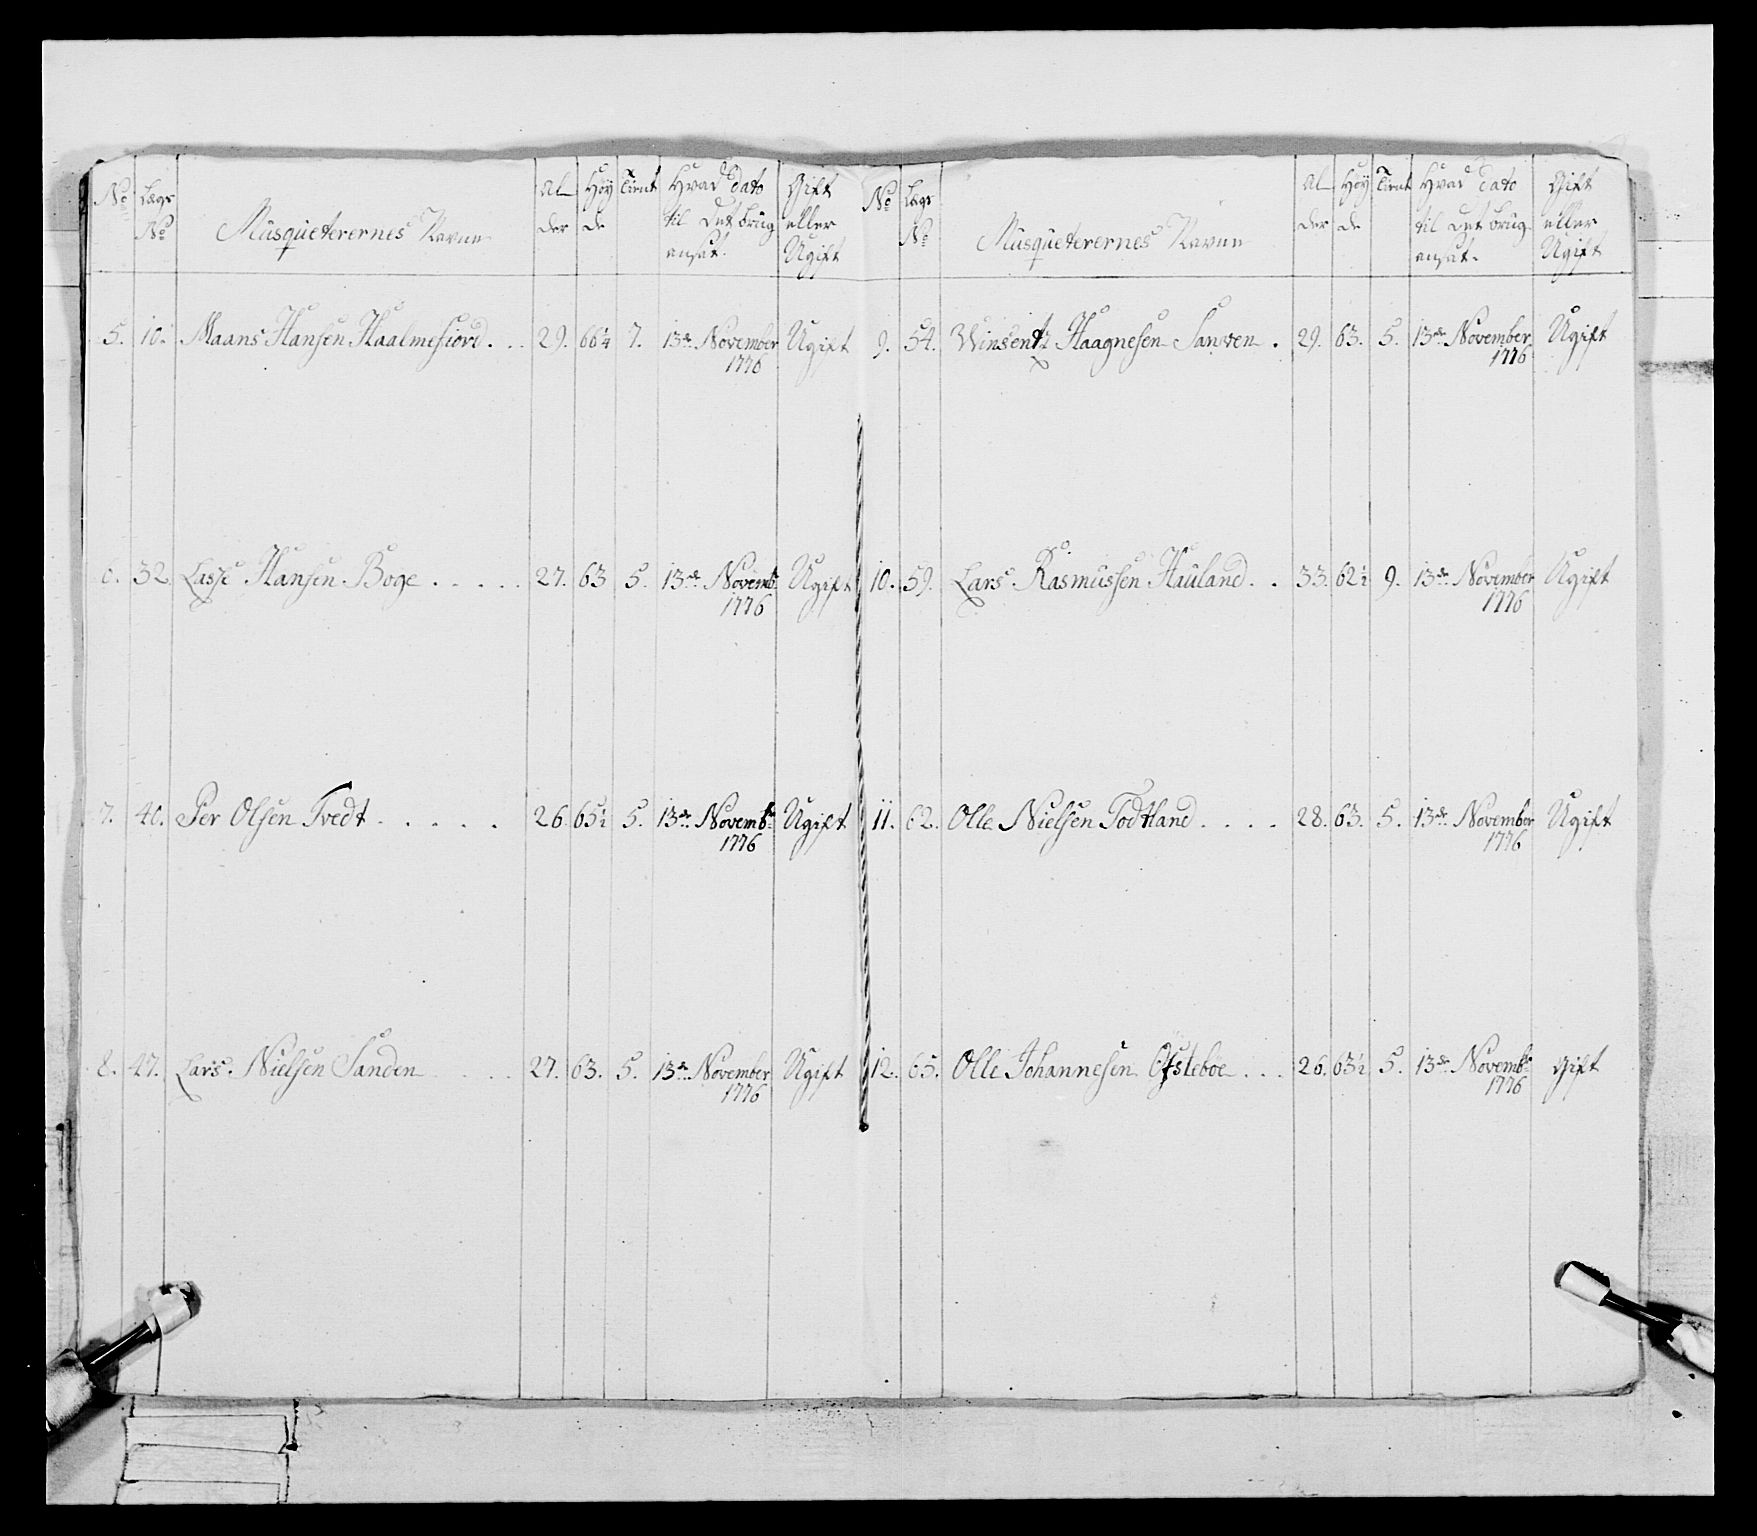 No Lægs No Musqueterernes Navne Al der Høy de Tient Hvad dato til det brug ansat. Gift eller Ugift
5. 10. Maans Hansen Haalmefiord . . 29. 66¼ 7. 13de November Ugift
1776
6. 32. Lasse Hansen Boge . . . . . 27. 63 5. 13de Novembr Ugift
1776
7. 40. Per Olsen Tvedt . . . . . 26. 65½ 5. 13de Novembr Ugift
1776
8. 47. Lars Nielsen Sanden . . . . 27. 63. 5. 13de November Ugift
1776
No Lægs No Musqueterernes Navne Al der Høy de Tient Hvad dato til det brug ansat. Gift eller Ugift
9. 54. Winsentz Haagnesen Sanven . 29. 63. 5. 13de November Ugift
1776
10. 59. Lars Rasmussen Hauland . . 33. 62½ 9. 13de November Ugift
1776
11. 62. Olle Nielsen Todtland . . . . 28. 63. 5. 13de November Ugift
1776
12. 65. Olle Johannesen Østebøe . . . 26. 63½ 5. 13de Novembr Gift
1776